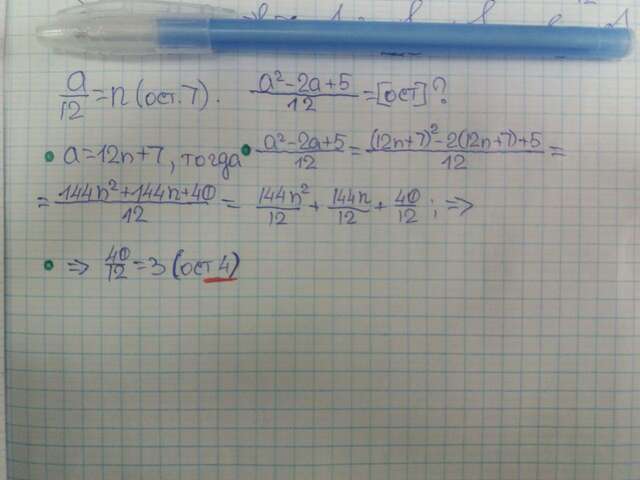 a/12 = n (ост. 7). (a²-2a+5)/12 = [ост]?
a = 12n+7, тогда (a²-2a+5)/12 = ((12n+7)²-2(12n+7)+5)/12 =
= (144n²+144n+40)/12 = 144n²/12 + 144n/12 + 40/12 ; =>
=> 40/12 = 3 (ост 4)